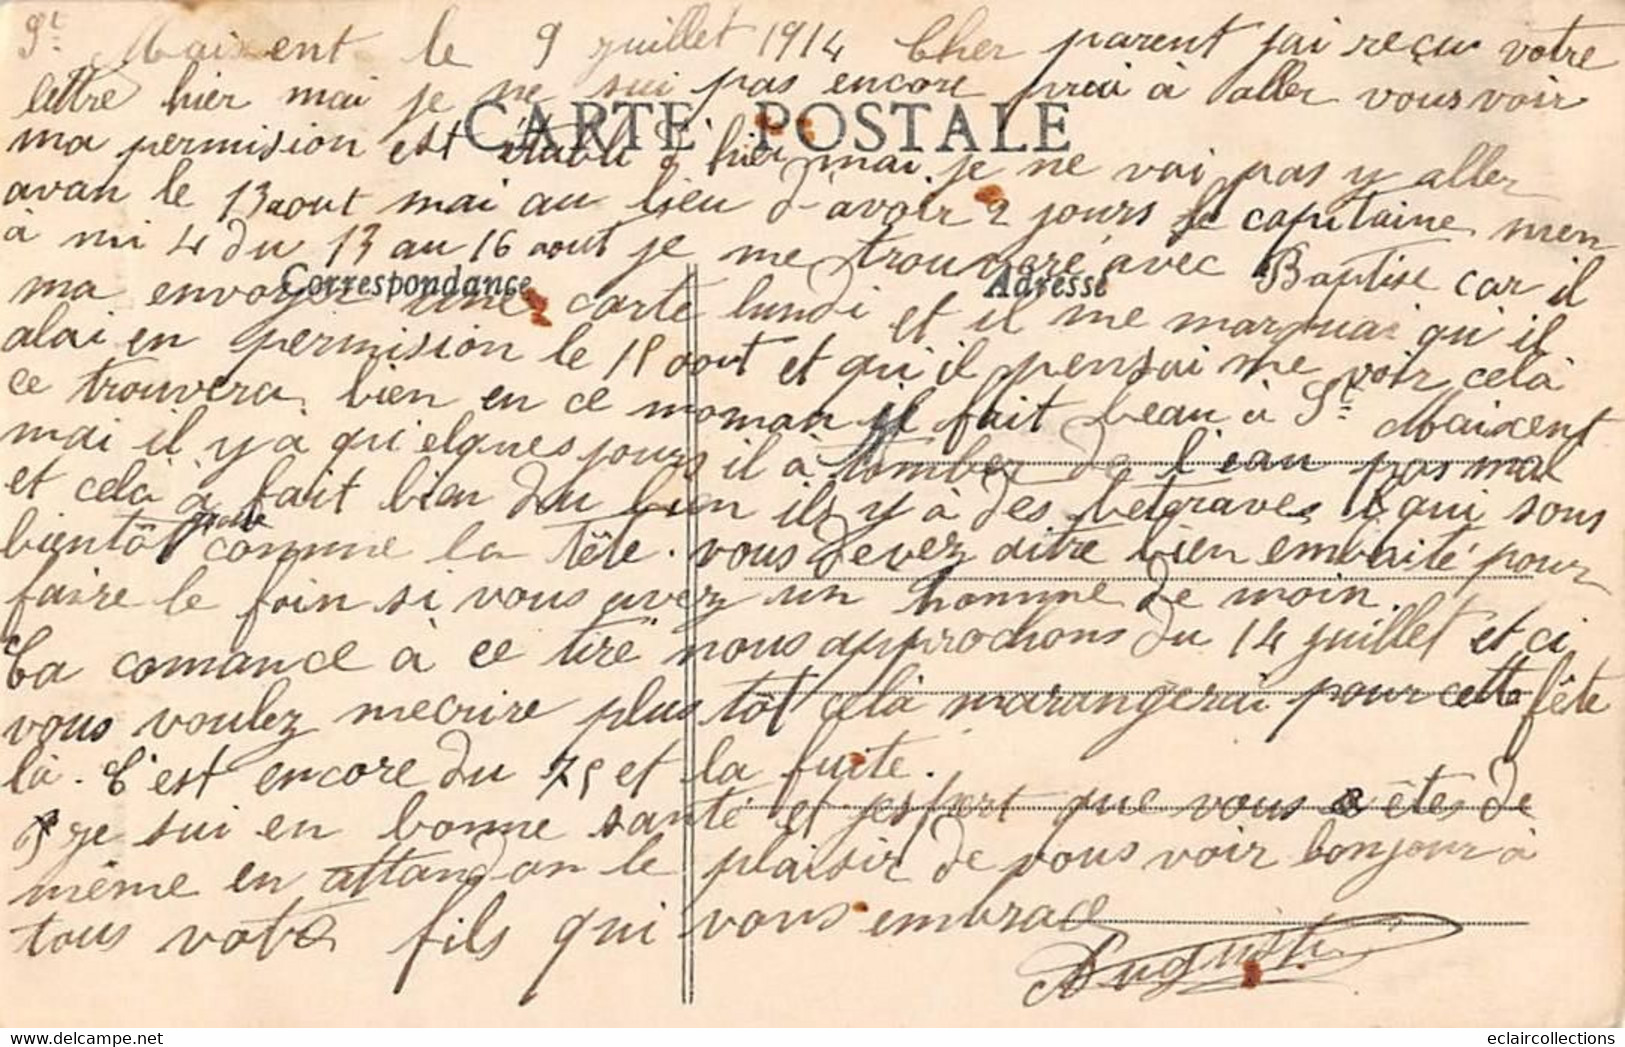 St Maixent le 9 juillet 1914 Cher parent jai reçu votre
lettre hier mai je ne sui pas encore à aller vous voir
CARTE POSTALE
ma permision est établi d'hier mai je ne vai pas y aller
avan le 13 aout mai au lieu d'avoir 2 jours le capitaine men
à mi 4 du 13 au 16 aout je me trouveré avec Baptise car il
Correspondance Adresse
ma envoyer une carte lundi et il me marquai qu'il
alai en permision le 15 aout et qu'il pensai me voir celà
ce trouvera bien en ce moman il fait beau à St Maixent
mai il y a qu'elques jours il à tomber de l'eau pas mal
et celà à fait bien du bien ils y à des betgraves qui sons
bientôt comme la tête. vous devez aitre bien embaité pour
faire le foin si vous avez un homme de moin.
Ca comance à ce tiré nous approchons du 14 juillet et ci
vous voulez mecrire plus tôt celà marangerai pour cette fête
là. C'est encore du 75 et la fuite.
je sui en bonne santé et jespert que vous êtes de
même en attandan le plaisir de vous voir bonjour à
tous votre fils qui vous embrace
Auguste
eclaircollections